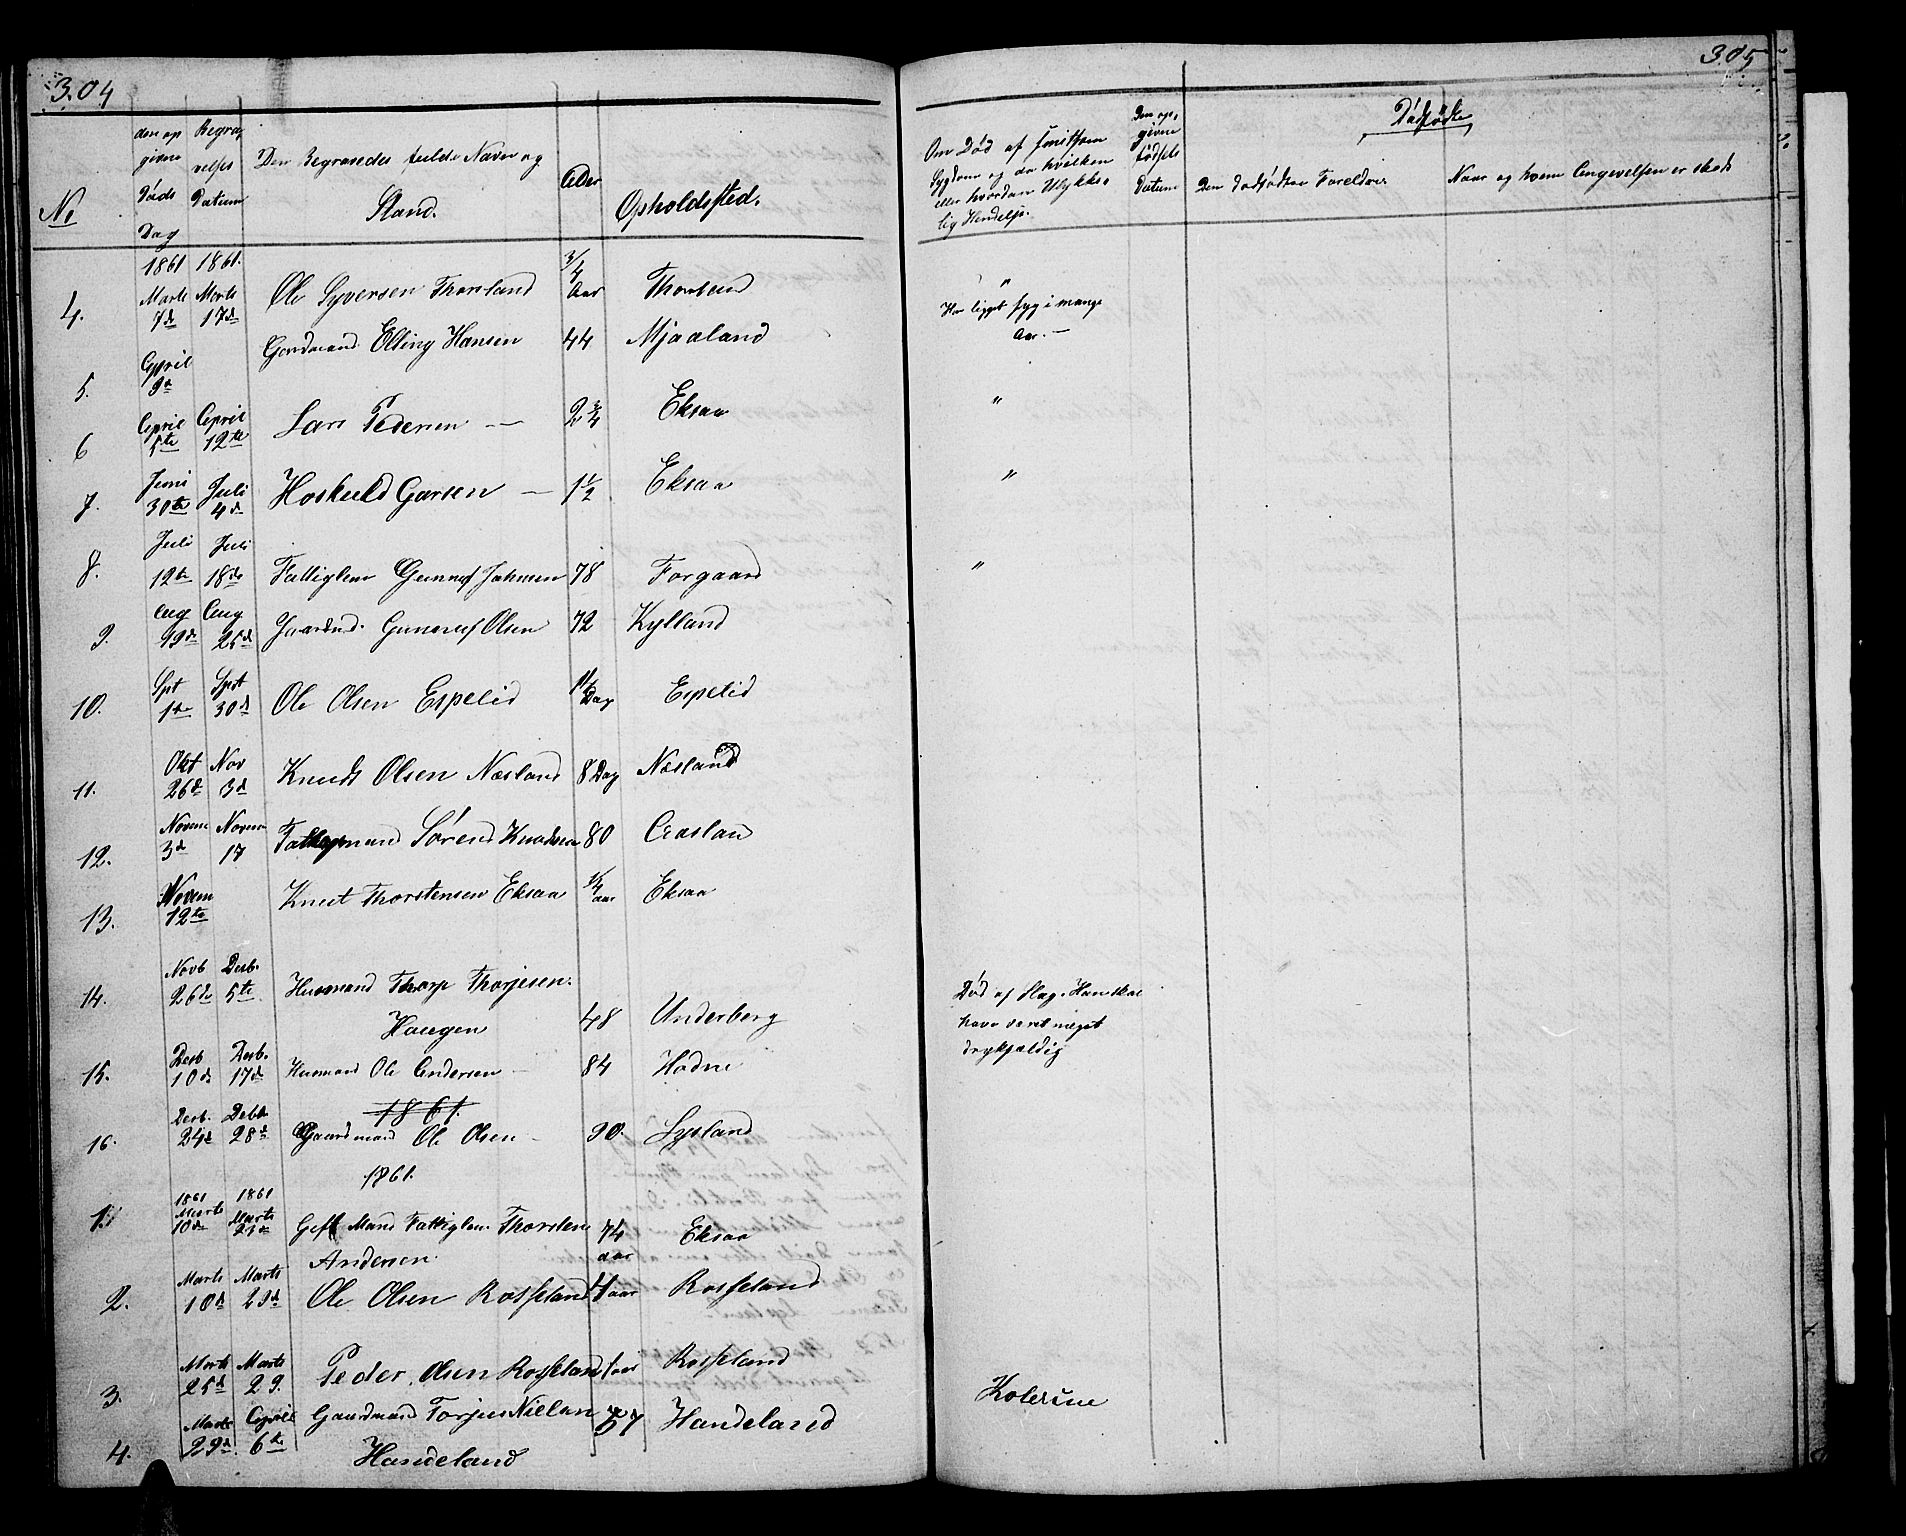 304
No
den op givne Døds Dag
Begra velses Datum
Den Begravedes fulde Navn og Stand.
Alder
Opholdssted.
1861 1861.
4. Marts 7de Marts 17de Ole Syversen Thorsland 3/4 Aar Thorsland
5. April 9de Gaardmand Elling Hansen 44 Mjaaland
6 April 5te April 12te Lars Pedersen — 2 3/4 Eksaa
7. Juni 30te Juli 4de Hoskuld Garsen — 1 1/2 Eksaa
8. Juli 12te Juli 18de Fattiglem Gunnuf Johnsen 78 Forgaard
9. Aug 19de Aug 25de Gaardmd. Gunnuf Olsen 72 Kylland
10. Spt 1te Spt 30de Ole Olsen Espelid Dag Espelid
11. Okt 26de Nov 3d Knudt Olsen Næsland 8 Dag Næsland
12. Novem 3d Novem 17 Fattigmand Søren Knudsen 80
13. Novem 12te Knut Thorstensen Eksaa 1/4 aar Eksaa
14. Novb 26de Desb. 5te Husmand Thorje Thorjesen.
Haugen 48 Underberg
15. Desb 10de Desb. 17de Husmand Ole Andersen — 84 Hodne
1861.
16. Desb. 24de Debb 28de Gaardmand Ole Olsen — 90. Lysland
1861.
1861 1861
1. Marts 10de Marts Gift Mand Fattiglem Thorsten 74 aar Eksaa
Andersen
2. Marts 10d Marts 29d. Ole Olsen Rosseland 4 aar Rosseland
3. Marts 25d Marts 29. Peder Olsen Rosseland 1 aar Rosseland
4. Marts 29d. April 6te Gaardmand Torjus Nielsen 57 Handeland
Handeland
305
Om Død af smitsom
Sygdom og da hvilken
eller hvordan Ulykke-
lig Hendelse.
Den op-
givne
fødsels
Datum
Dødfødte
Den dødfødtes Foreldrer
Naar og hvem Angivelsen er skede
"
Har ligget syg i mange
Aar. —
"
"
"
Død af Slag. Han skal
have været meget
drykfældig
Kolerine